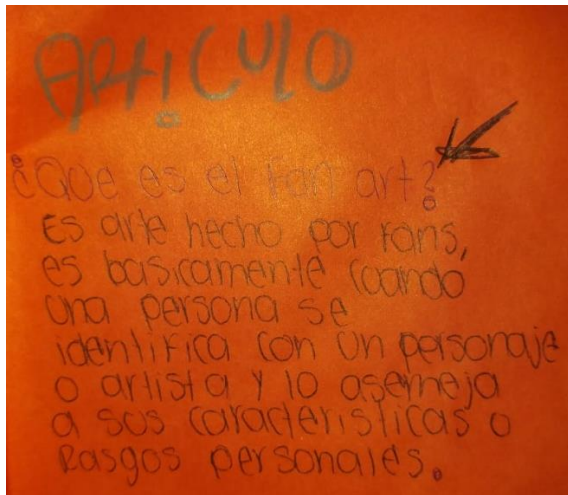 ARTiCULO
¿Que es el fan art?
Es arte hecho por fans,
es basicamente cuando
una persona se
identifica con un personaje
o artista y lo asemeja
a sus caracteristicas o
Rasgos personales.